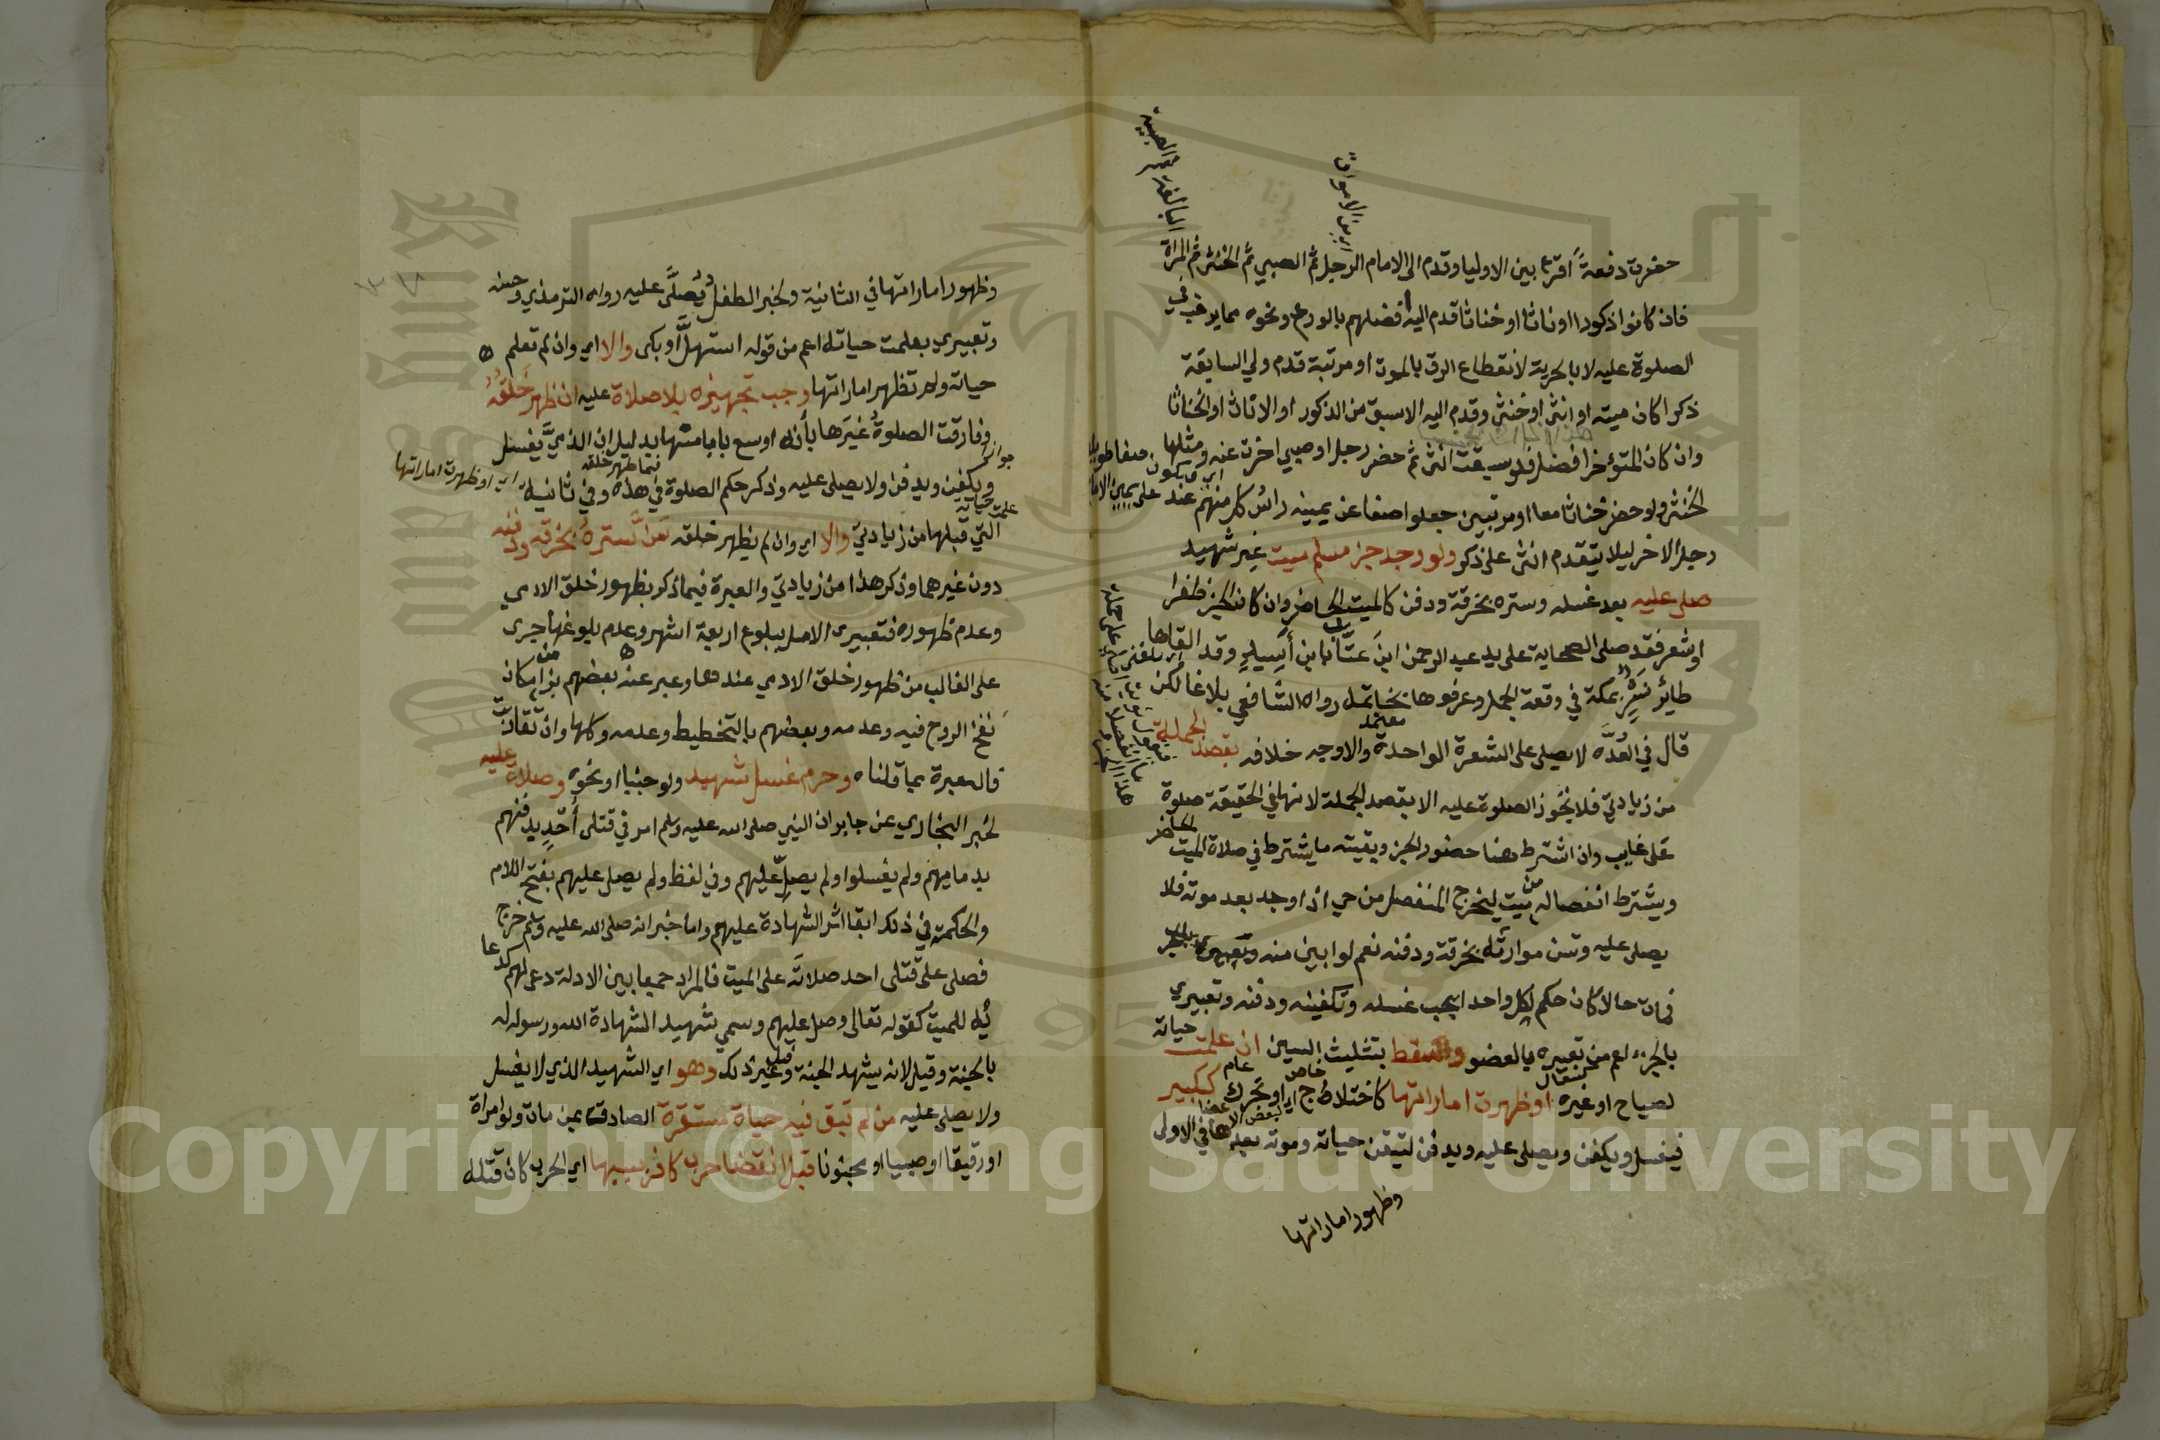 حضرت دفعة اقرع بين الاوليا وقدم الى الامام الرجل ثم الصبي ثم الخنثى ثم المراة
فان كانوا ذكورا او اناثا او خناثا قدم اليه افضلهم بالورع ونحوه مما يرغب في
الصلوة عليه لا بالحرية لانقطاع الرق بالموت او مرتبة قدم ولي السابقة
ذكرا كان ميته او انثى او خنثى وقدم اليه الاسبق من الذكور او الاناث او الخناثا
وان كان المتوخر افضل فلو سبقت انثى ثم حضر رجل او صبي اخرت عنه ومثلها
الخنثى ولو حضر خناثا معا او مرتبين جعلوا صفا عن يمينه راس كل منهم عند
رجل الاخر ليلا يتقدم انثى على ذكر ولو وجد جزء مسلم ميت غير شهيد
صلى عليه بعد غسله وستره بخرقة ودفن كالميت الحاضر وان كان الجز ظفرا
او شعر فقد صلى الصحابة على يد عبد الرحمن ابن عتاب ابن أسيد وقد القاها
طائر نسر بمكة في وقعة الجمل وعرفوها بخاتمه رواه الشافعي بلاغا لكن
قال في العدة لا يصلى على الشعرة الواحدة والاوجه خلافه بقصد الجملة
من زيادتي فلا تجوز الصلوة عليه الا بقصد الجملة لانها في الحقيقة صلوة
على غايب وان اشترط هنا حضور الجز وبقيته ما يشترط في صلاة الميت الحاضر
ويشترط انفصاله من ميت ليخرج المنفصل من حي اذا وجد بعد موته فلا
يصلى عليه وتسن مواراته بخرقة ودفنه نعم لو ابين منه
فمات حالا كان حكم لكل واحدا يجب غسله وتكفينه ودفنه وتعبيري
بالجزء اعم من تعبيره بالعضو والسقط بتثليث السين ان علمت حياته
لصياح او غيره او ظهرت اماراتها كاختلاج او تحرك ككبير
فيغسل ويكفن ويصلى عليه ويدفن لتيقن حياته وموته بعدها في الاولى
وظهور اماراتها
وظهور اماراتها في الثانية ولخبر الطفل يصلى عليه رواه الترمذي وحسنه
وتعبيري بعلمت حياته اعم من قوله استهل او بكى والا اي وان لم تعلم
حياته ولم تظهر اماراتها وجب تجهيزه بلا صلاة عليه ان ظهر خلقه
وفارقت الصلوة غيرها بأنه اوسع بابا منها بدليل ان الذمي يغسل
ويكفن ويدفن ولا يصلى عليه وذكر حكم الصلوة في هذه وفي ثانية
التي قبلها من زيادتي والا اي وان لم يظهر خلقه سن ستره بخرقة ودفنه
دون غيرهما وذكر هذا من زيادتي والعبرة فيما ذكر بظهور خلق الادمي
وعدم ظهوره فتعبيرى الاصل ببلوغ اربعة اشهر وعدم بلوغها جرى
على الغالب من ظهور خلق الادمي عندها وعبر عنه بعضهم بزمن امكان
نفخ الروح فيه وعدمه وبعضهم بالتخطيط وعدمه وكلها وان تقاربت
فالعبرة بما قلناه وحرم غسل شهيد ولو جنبا او نحوه وصلاة عليه
لخبر البخاري عن جابر ان النبي صلى الله عليه وسلم امر في قتلى أحد بدفنهم
بدمايهم ولم يغسلوا ولم يصل عليهم وفي لفظ ولم يصل عليهم بفتح اللام
والحكمة في ذلك ابقا اثر الشهادة عليهم واما خبر انه صلى الله عليه وسلم خرج
فصلى على قتلى احد صلاته على الميت فالمراد جمعا بين الادلة دعى لهم كدعا
ئه للميت كقوله تعالى وصل عليهم وسمي شهيد الشهادة الله ورسوله له
بالجنة وقيل لانه يشهد الجنة وقيل غير ذلك وهو اي الشهيد الذي لا يغسل
ولا يصلى عليه من لم تبق فيه حياة مستقرة الصادق بمن مات ولو امراة
او رقيقا او صبيا او مجنونا قبل انقضا حرب كافر بسببها اي الحرب كان قتله